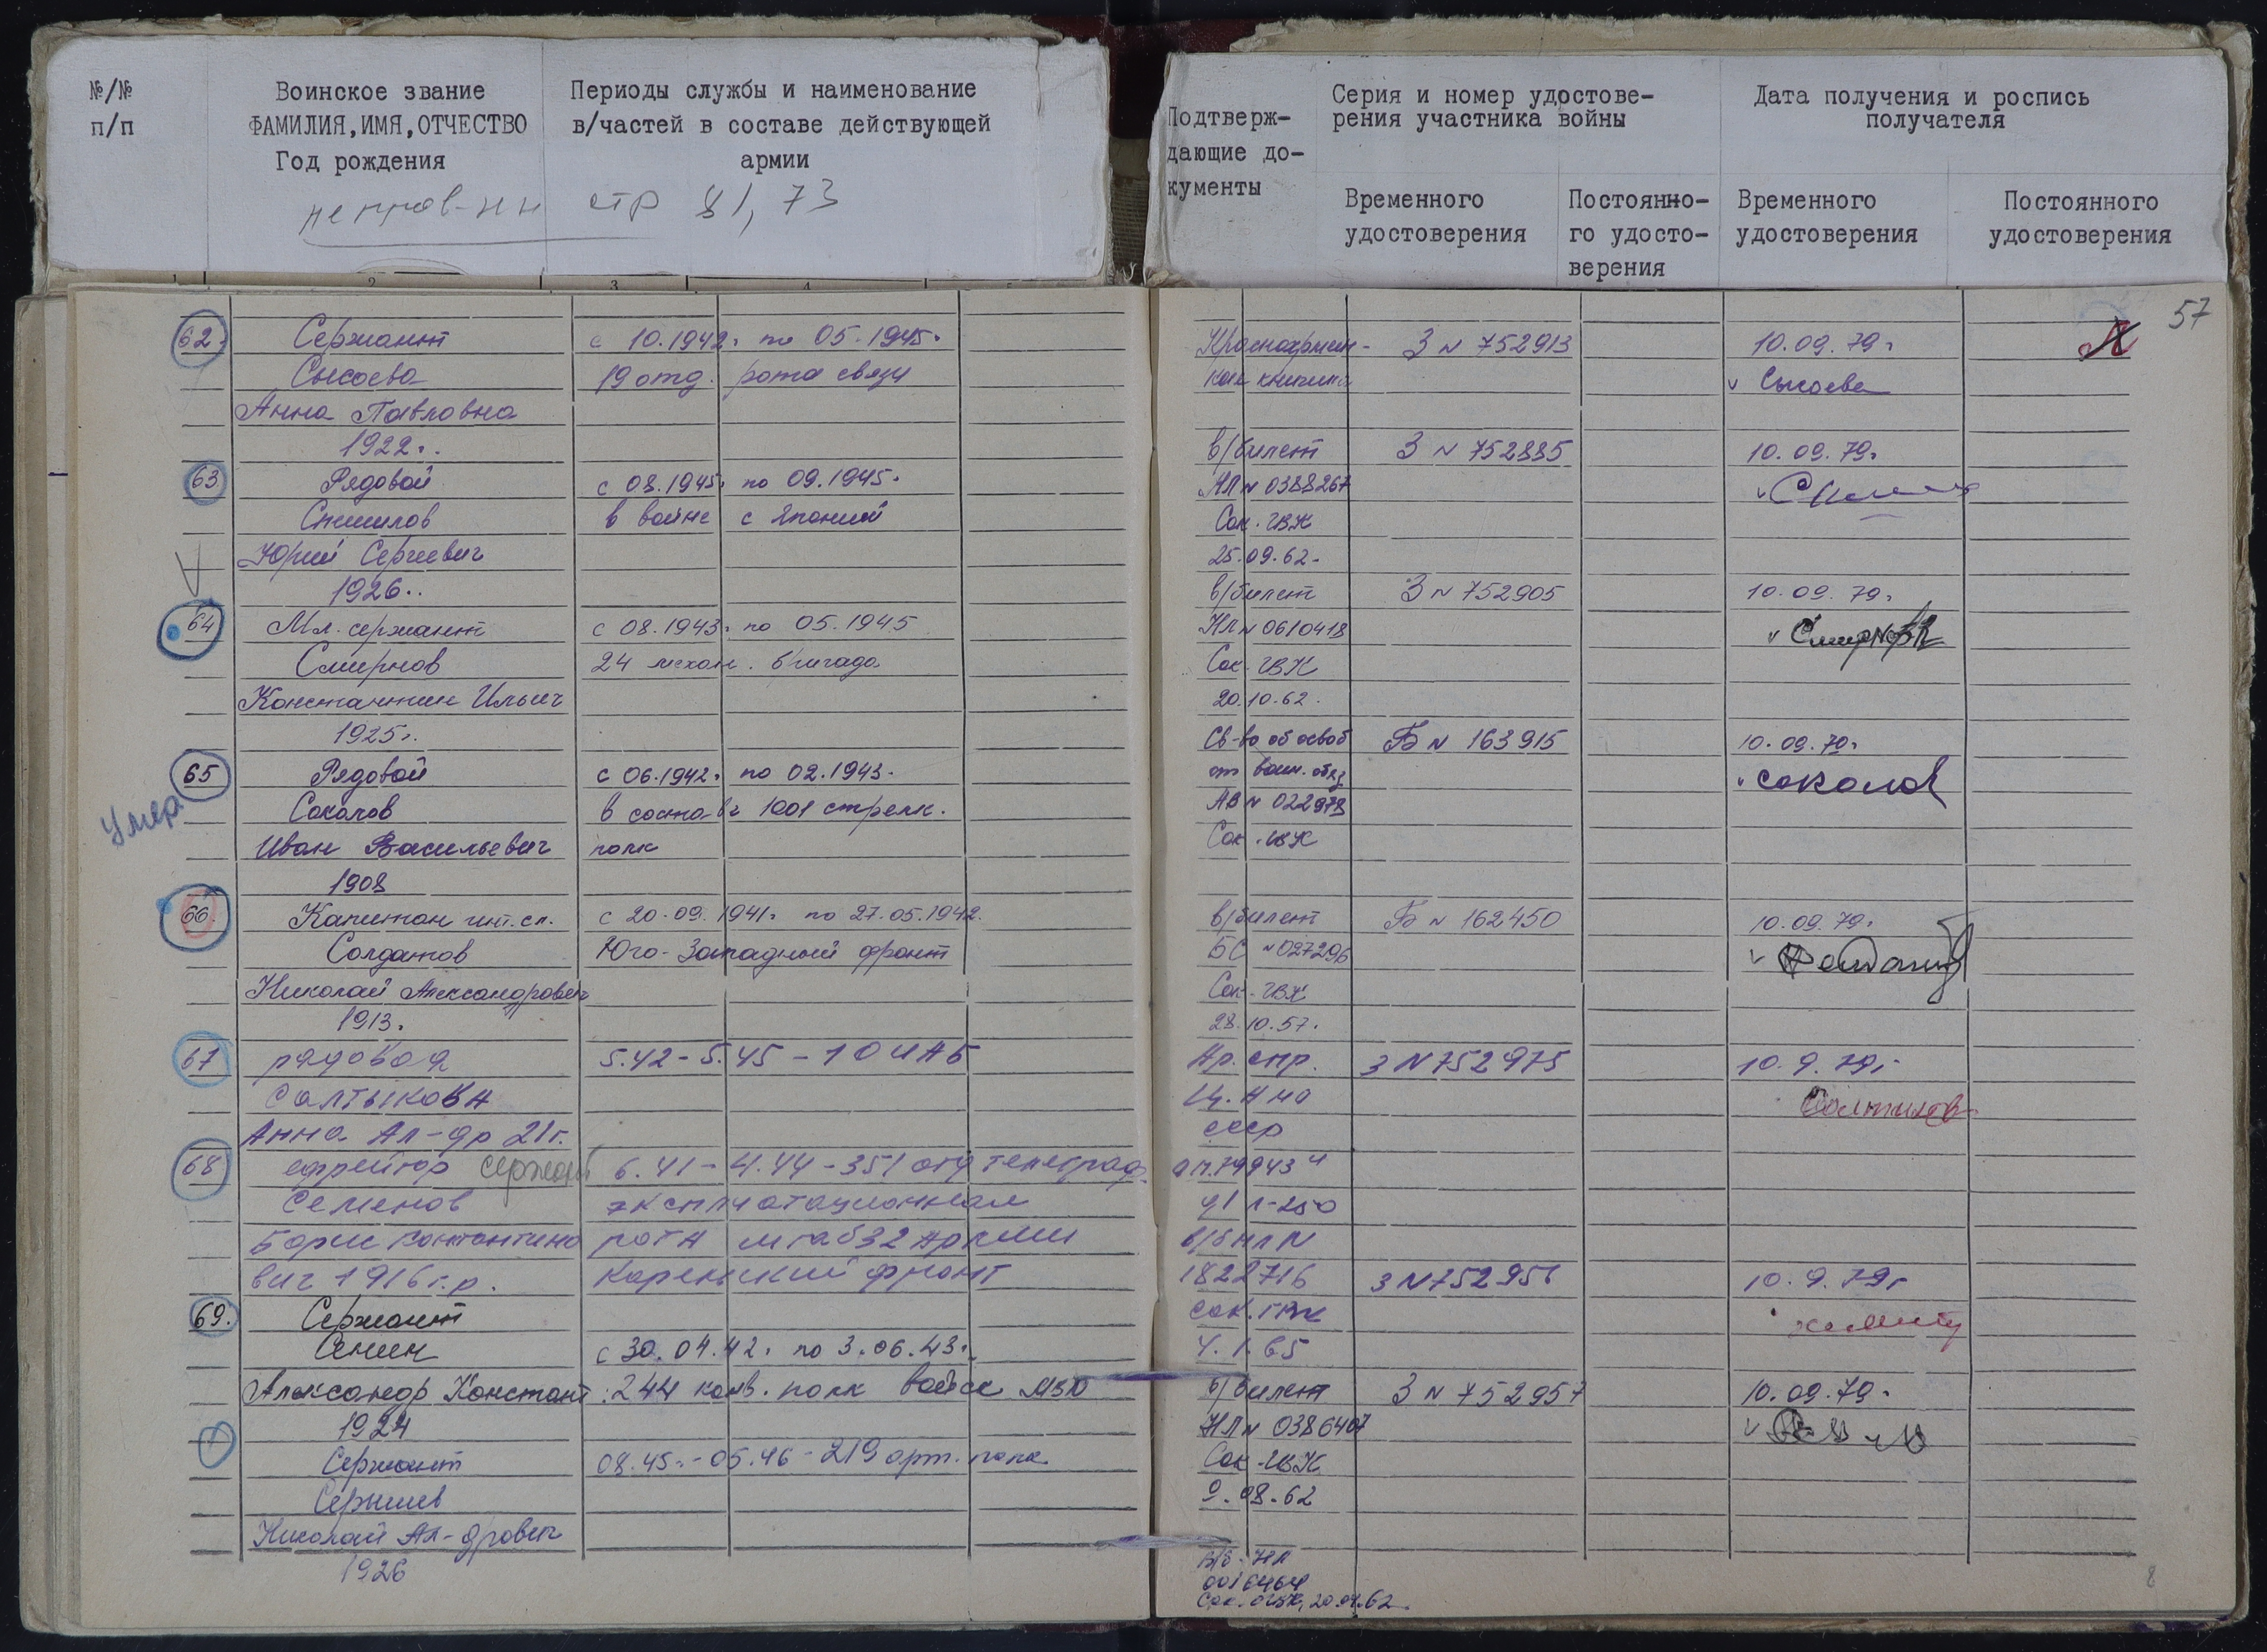 №/№
п/п
Воинское звание
ФАМИЛИЯ, ИМЯ, ОТЧЕСТВО
Год рождения
Периоды службы и наименование
в/частей в составе действующей
армии
стр 81, 73
Подтверж-
дающие до-
кументы
Серия и номер удостове-
рения участника войны
Дата получения и роспись
получателя
Временного
удостоверения
Постоянно-
го удосто-
верения
Временного
удостоверения
Постоянного
удостоверения
57
62. Сержант с 10.1942г. по 05.1945г.
Сысоева 19 отд. рота связи
Анна Павловна
1922г.
63 Рядовой с 08.1945г. по 09.1945г.
в войне с Японией
Юрий Сергеевич
1926г.
64 Мл. сержант с 08.1943г. по 05.1945
Смирнов 24 механ. бригада
Константин Ильич
1925г.
65 Рядовой с 06.1942г. по 02.1943г.
умер Соколов в составе 1001 стрелк.
Иван Васильевич полк
1908
66. Капитан инт. сл. с 20.09.1941г. по 27.05.1942.
Солдатов Юго-Западный фронт
Николай Александрович
1913г.
67 рядовая 5.42-5.45-10 ИАБ
Салтыкова
Анна Ал-др 21г.
68 ефрейтор сержант 6.41-4.44-351 отд телеграф
Семенов эксплуатационная
Борис Константино рота штаб 32 Армии
вич 1916 г.р. Карельский фронт
69. Сержант
Сенин с 30.04.42г. по 3.06.43г.
Александр Констант. 244 конв. полк войск
1924
Сержант 08.45г.-05.46-219 арт. полк
Николай Ал-дрович
1926
Красноармей- З № 752913 10.09.79г.
ская книжка Сысоева
в/билет З № 752885 10.09.79г.
НЛ № 0388267
Сок. ГВК
25.09.62
в/билет З № 752905 10.09.79г.
НЛ № 0610418 Смирнов
Сок. ГВК
20.10.62.
Св-во об освоб Б № 163915 10.09.79г.
от воин. обяз Соколов
АВ № 022979
Сок. ГВК
в/билет Б № 162450 10.09.79г.
БС № 027296
Сок. ГВК
28.10.57.
Ар. спр. З № 752975 10.9.79г.
Ц. А МО
СССР
оп. 79943 ч
д 1 л-250
в/б НЛ №
1822716 З № 752956 10.9.79г
Сок. ГВК
4.1.65
в/билет З № 752957 10.09.79г.
НЛ № 0386407
Сок. ГВК
9.08.62
в/б. НЛ
0016464
Сок. ОГВК, 20.04.62.
8